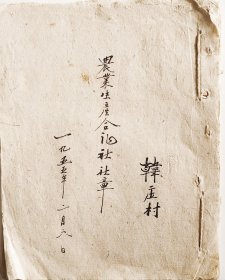 韓庄村
農業生產合作社社章
一九五五年二月六日